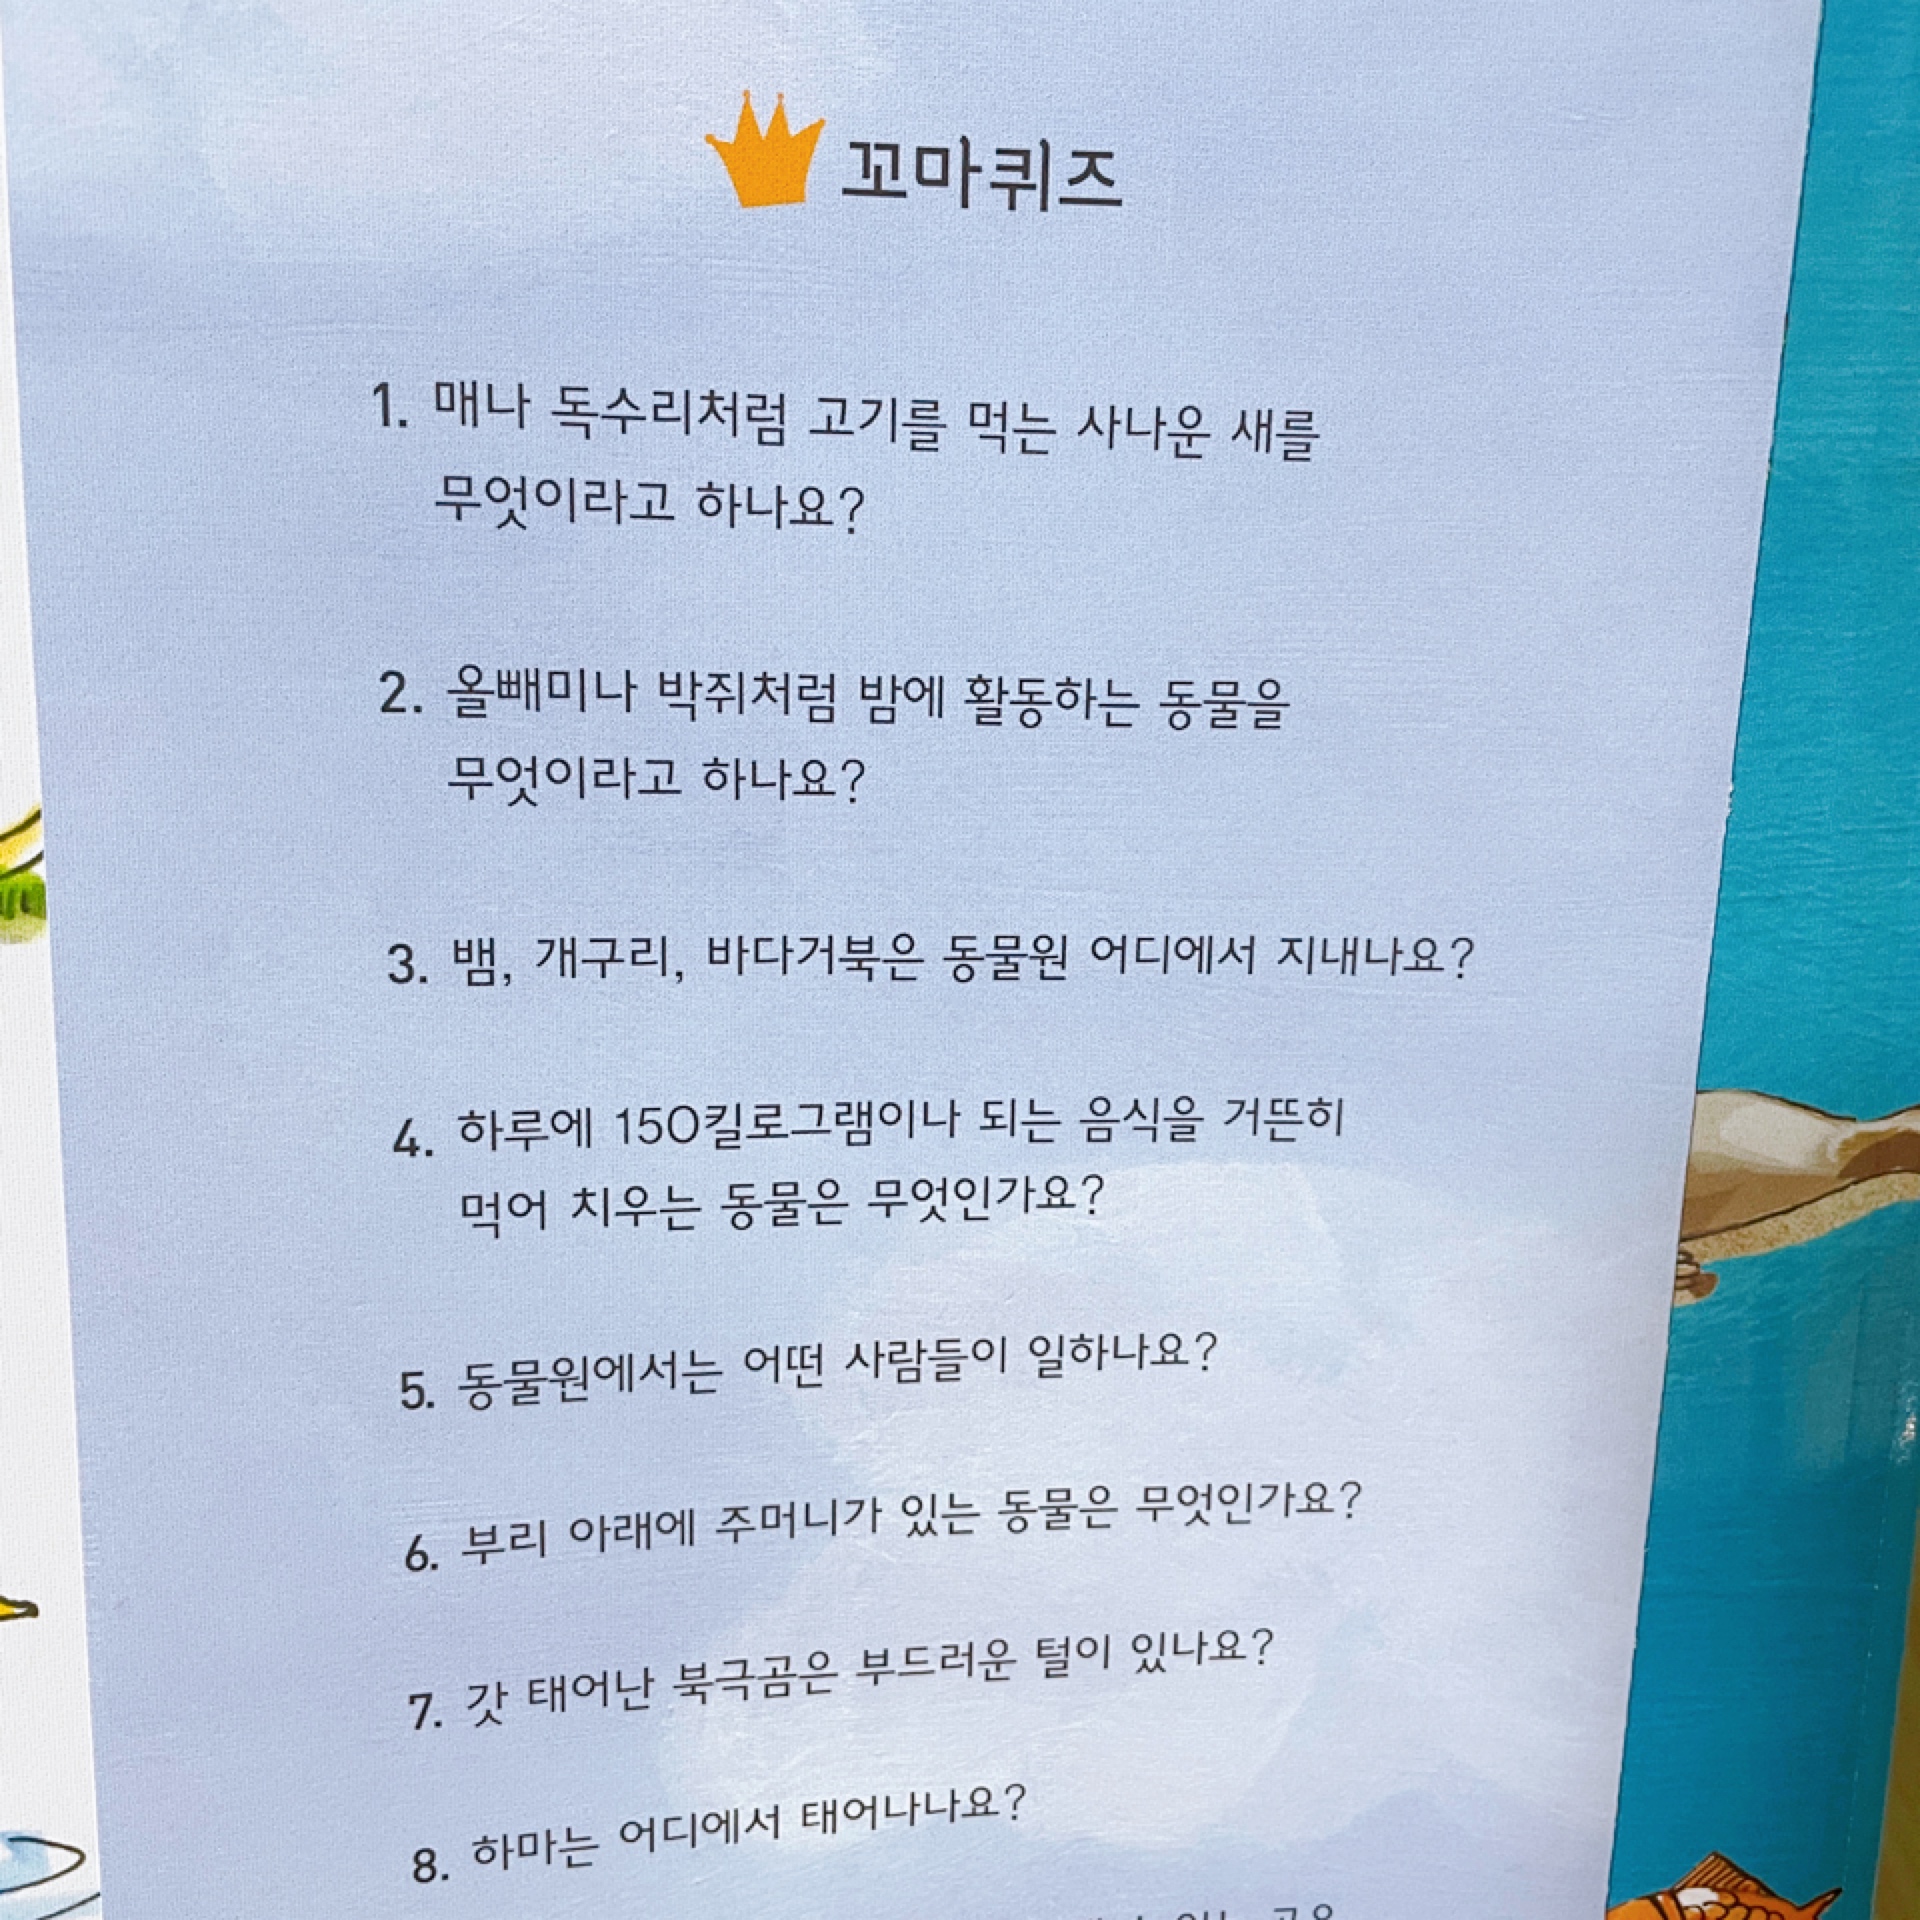 꼬마퀴즈
1. 매나 독수리처럼 고기를 먹는 사나운 새를
무엇이라고 하나요?
2. 올빼미나 박쥐처럼 밤에 활동하는 동물을
무엇이라고 하나요?
3. 뱀, 개구리, 바다거북은 동물원 어디에서 지내나요?
4. 하루에 150킬로그램이나 되는 음식을 거뜬히
먹어 치우는 동물은 무엇인가요?
5. 동물원에서는 어떤 사람들이 일하나요?
6. 부리 아래에 주머니가 있는 동물은 무엇인가요?
7. 갓 태어난 북극곰은 부드러운 털이 있나요?
8. 하마는 어디에서 태어나나요?